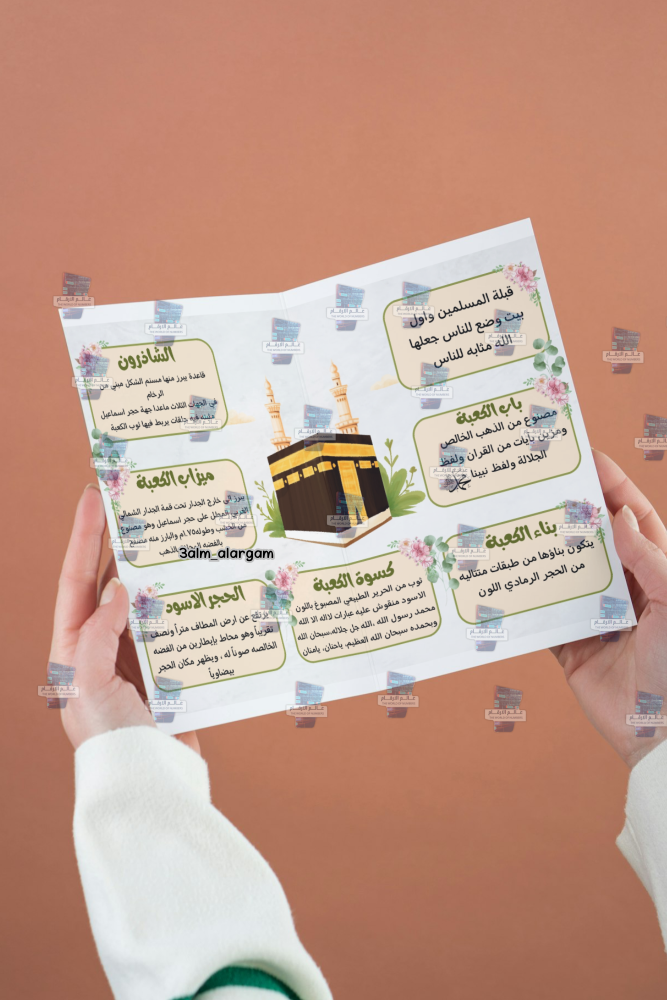 قبلة المسلمين واول
بيت وضع للناس جعلها
الله مثابه للناس
باب الكعبة
مصنوع من الذهب الخالص
ومزين بآيات من القرآن ولفظ
الجلالة ولفظ نبينا ﷴ
بناء الكعبة
يتكون بناؤها من طبقات متتاليه
من الحجر الرمادي اللون
كسوة الكعبة
ثوب من الحرير الطبيعي المصبوغ باللون
الاسود منقوش عليه عبارات لااله الا الله
محمد رسول الله ،الله جل جلاله،سبحان الله
وبحمده سبحان الله العظيم، ياحنان، يامنان
الشاذرون
قاعدة يبرز منها مسنم الشكل مبني من
الرخام
في الجهات الثلاث ماعدا جهة حجر اسماعيل
ومثبته فيه حلقات يربط فيها ثوب الكعبة
ميزاب الكعبة
يبرز الى خارج الجدار تحت قمة الجدار الشمالي
الغربي المطل على حجر اسماعيل وهو مصنوع
من الخشب وطوله ١.٧٥م والبارز منه مصنع
بالفضه المطليه بالذهب
3alm_alargam
الحجر الاسود
يرتفع عن ارض المطاف متراً ونصف
تقريباً وهو محاط بإيطارين من الفضه
الخالصه صوناً له ، ويظهر مكان الحجر
بيضاوياً
عالم الارقام
THE WORLD OF NUMBERS